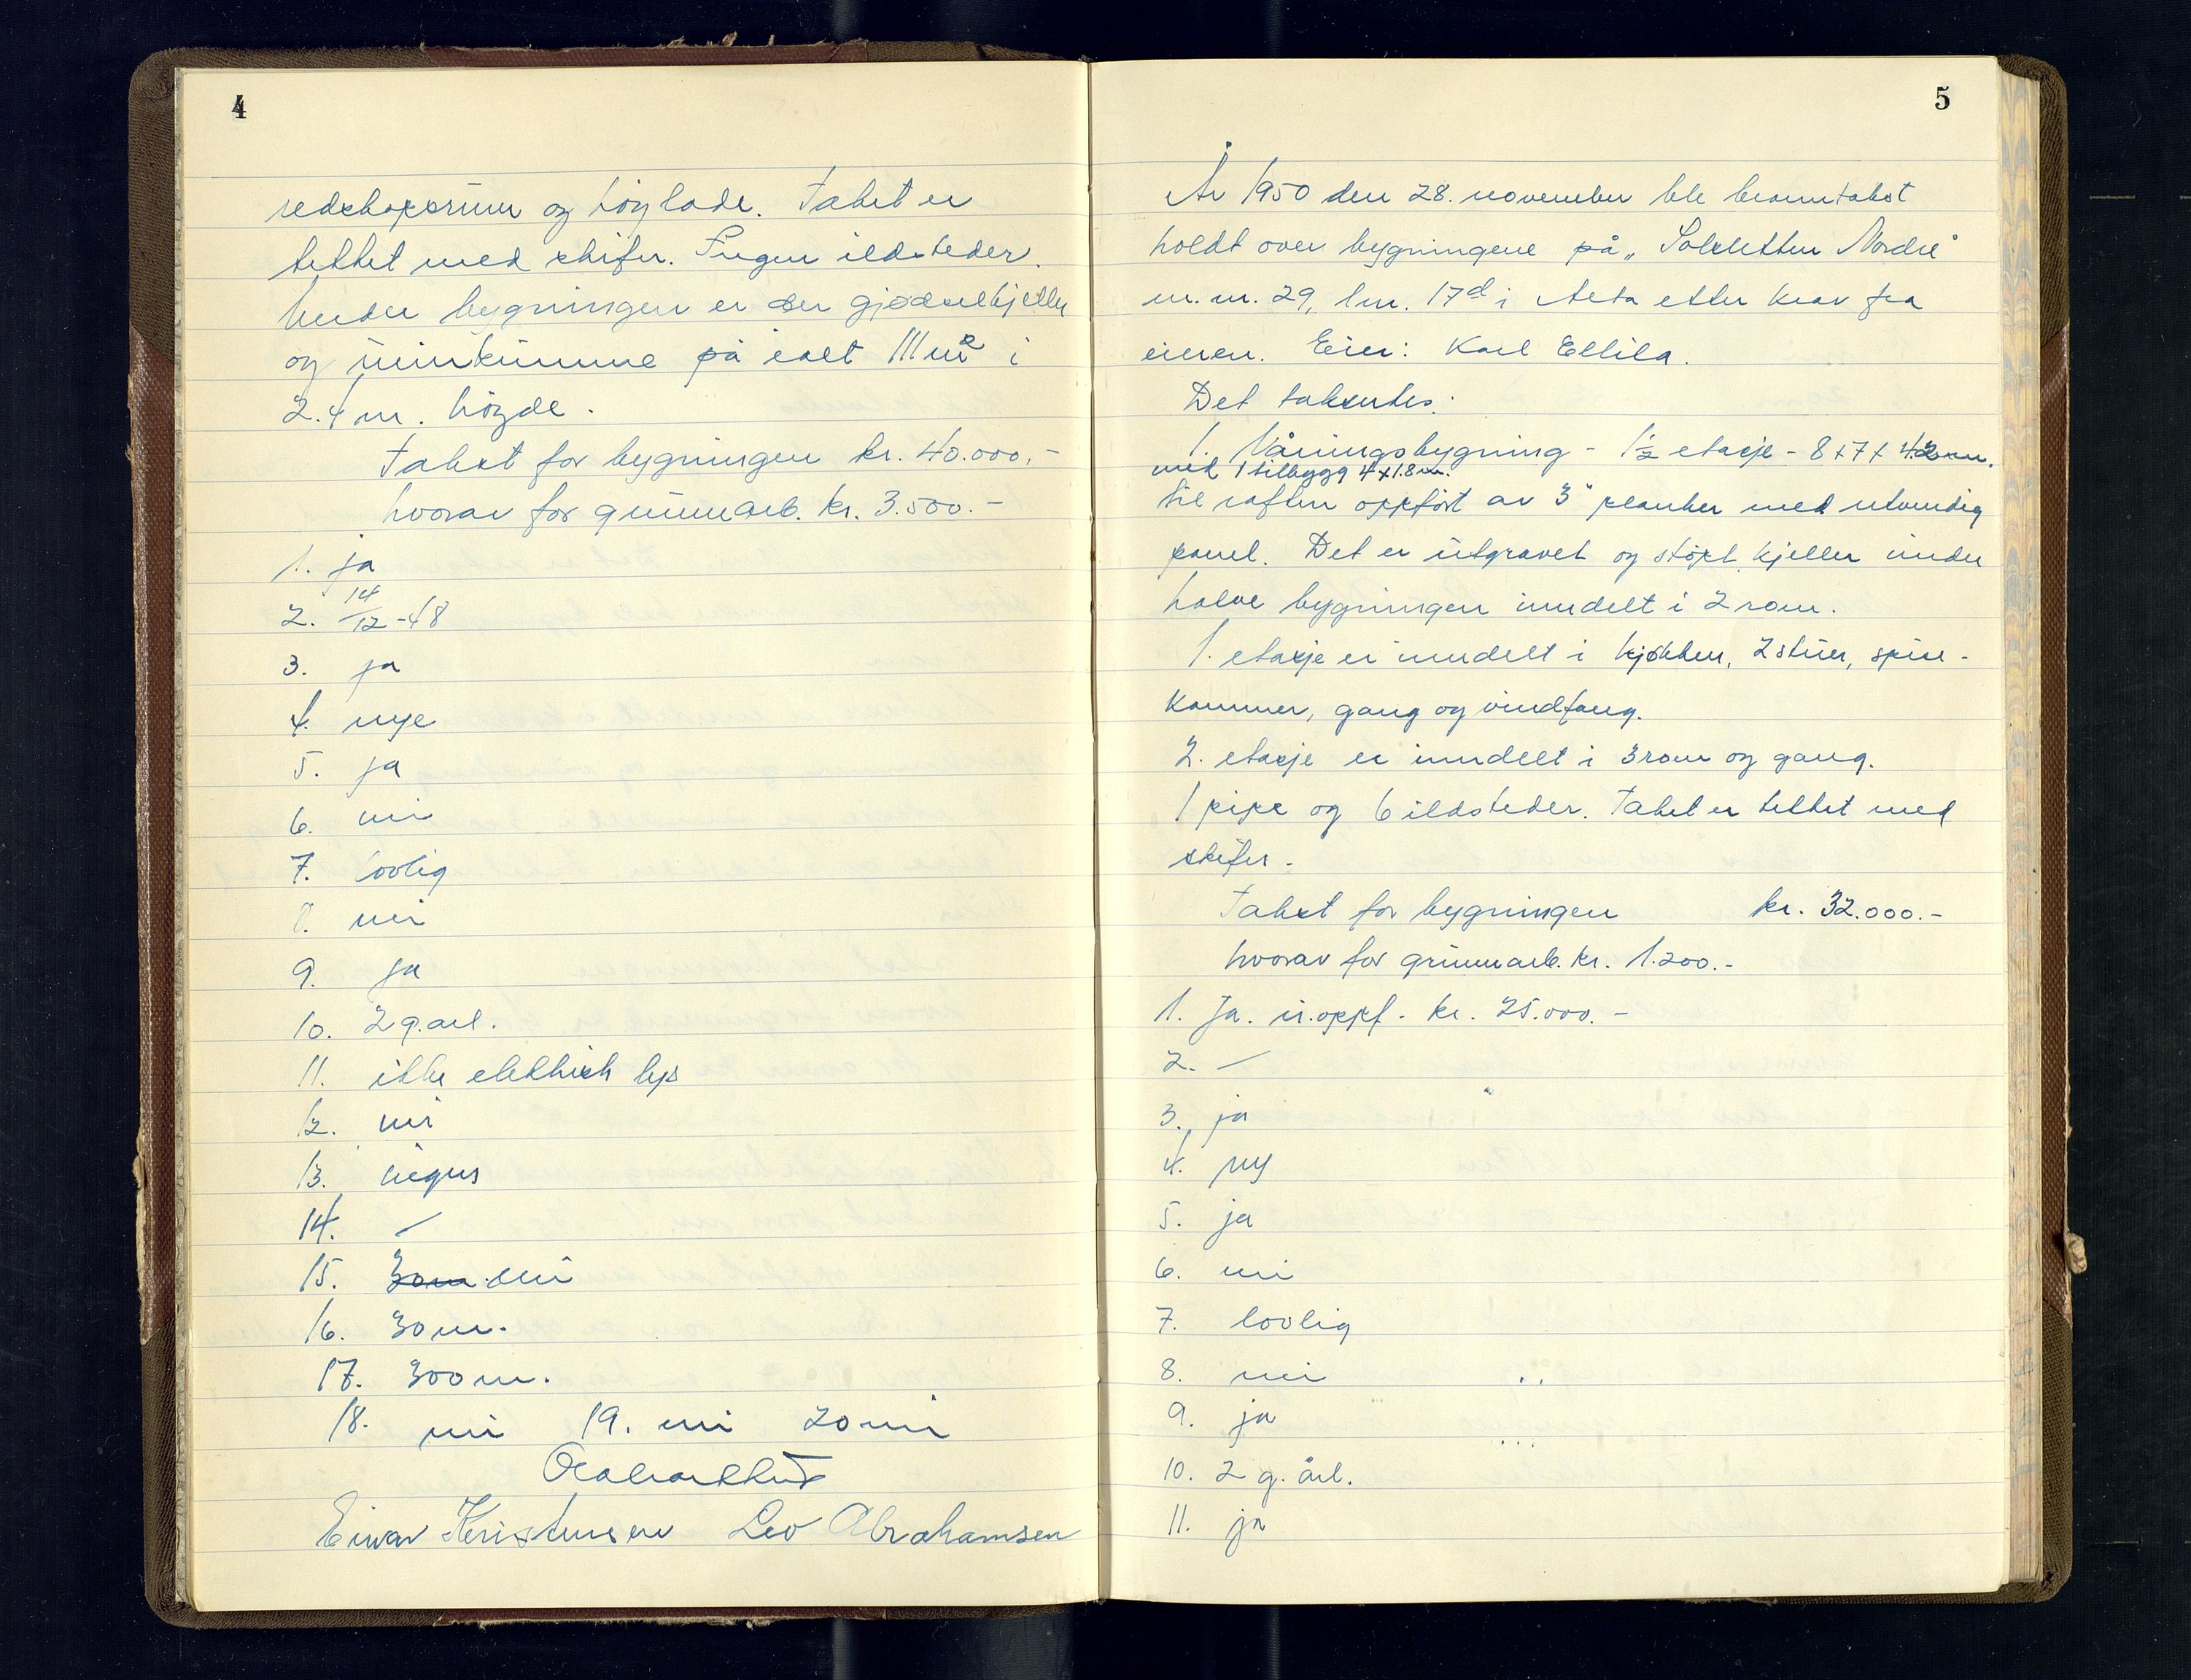 4
redskapsrum og höylade. Taket er
tekket med skifer. Ingen ildsteder.
Under bygningen er der gjødselkjeller
og urinkumme på ialt 111 m² i
2.4 m. høyde.
Takst for bygningen kr. 40.000,-
hvorav for grunnarb. kr. 3.500.-
1. ja
2. 14/12-48
3. ja
4. nye
5. ja
6. nei
7. lovlig
8. nei
9. ja
10. 2 g. årl.
11. ikke elektrisk lys
12. nei
13. ingen
14. –
15. 30m nei
16. 30 m.
17. 300 m.
18. nei 19. nei 20 nei
Einar Kristensen Leo Abrahamsen
5
År 1950 den 28. november ble branntakst
holdt over bygningene på „Solsletten Nordre"
m.nr. 29, lnr. 17d i Alta etter krav fra
eieren. Eier: Karl Ellila.
Det takseres:
1. Våningsbygning - 1½ etasje - 8 x 7 x 4.2 m.
med 1 tilbygg 4 x 1.8 m.
til raften oppført av 3" planker med utvendig
panel. Det er utgravet og støpt kjeller under
halve bygningen inndelt i 2 rom.
1. etasje er inndelt i kjøkken, 2 stuer, spise-
kammer, gang og vindfang.
2. etasje er inndelt i 3 rom og gang.
1 pipe og 6 ildsteder. Taket er tekket med
skifer.
Takst for bygningen kr. 32.000.-
hvorav for grunnarb. kr. 1.200.-
1. Ja. u. oppf. kr. 25.000.-
2. –
3. ja
4. ny
5. ja
6. nei
7. lovlig
8. nei
9. ja
10. 2 g. årl.
11. ja